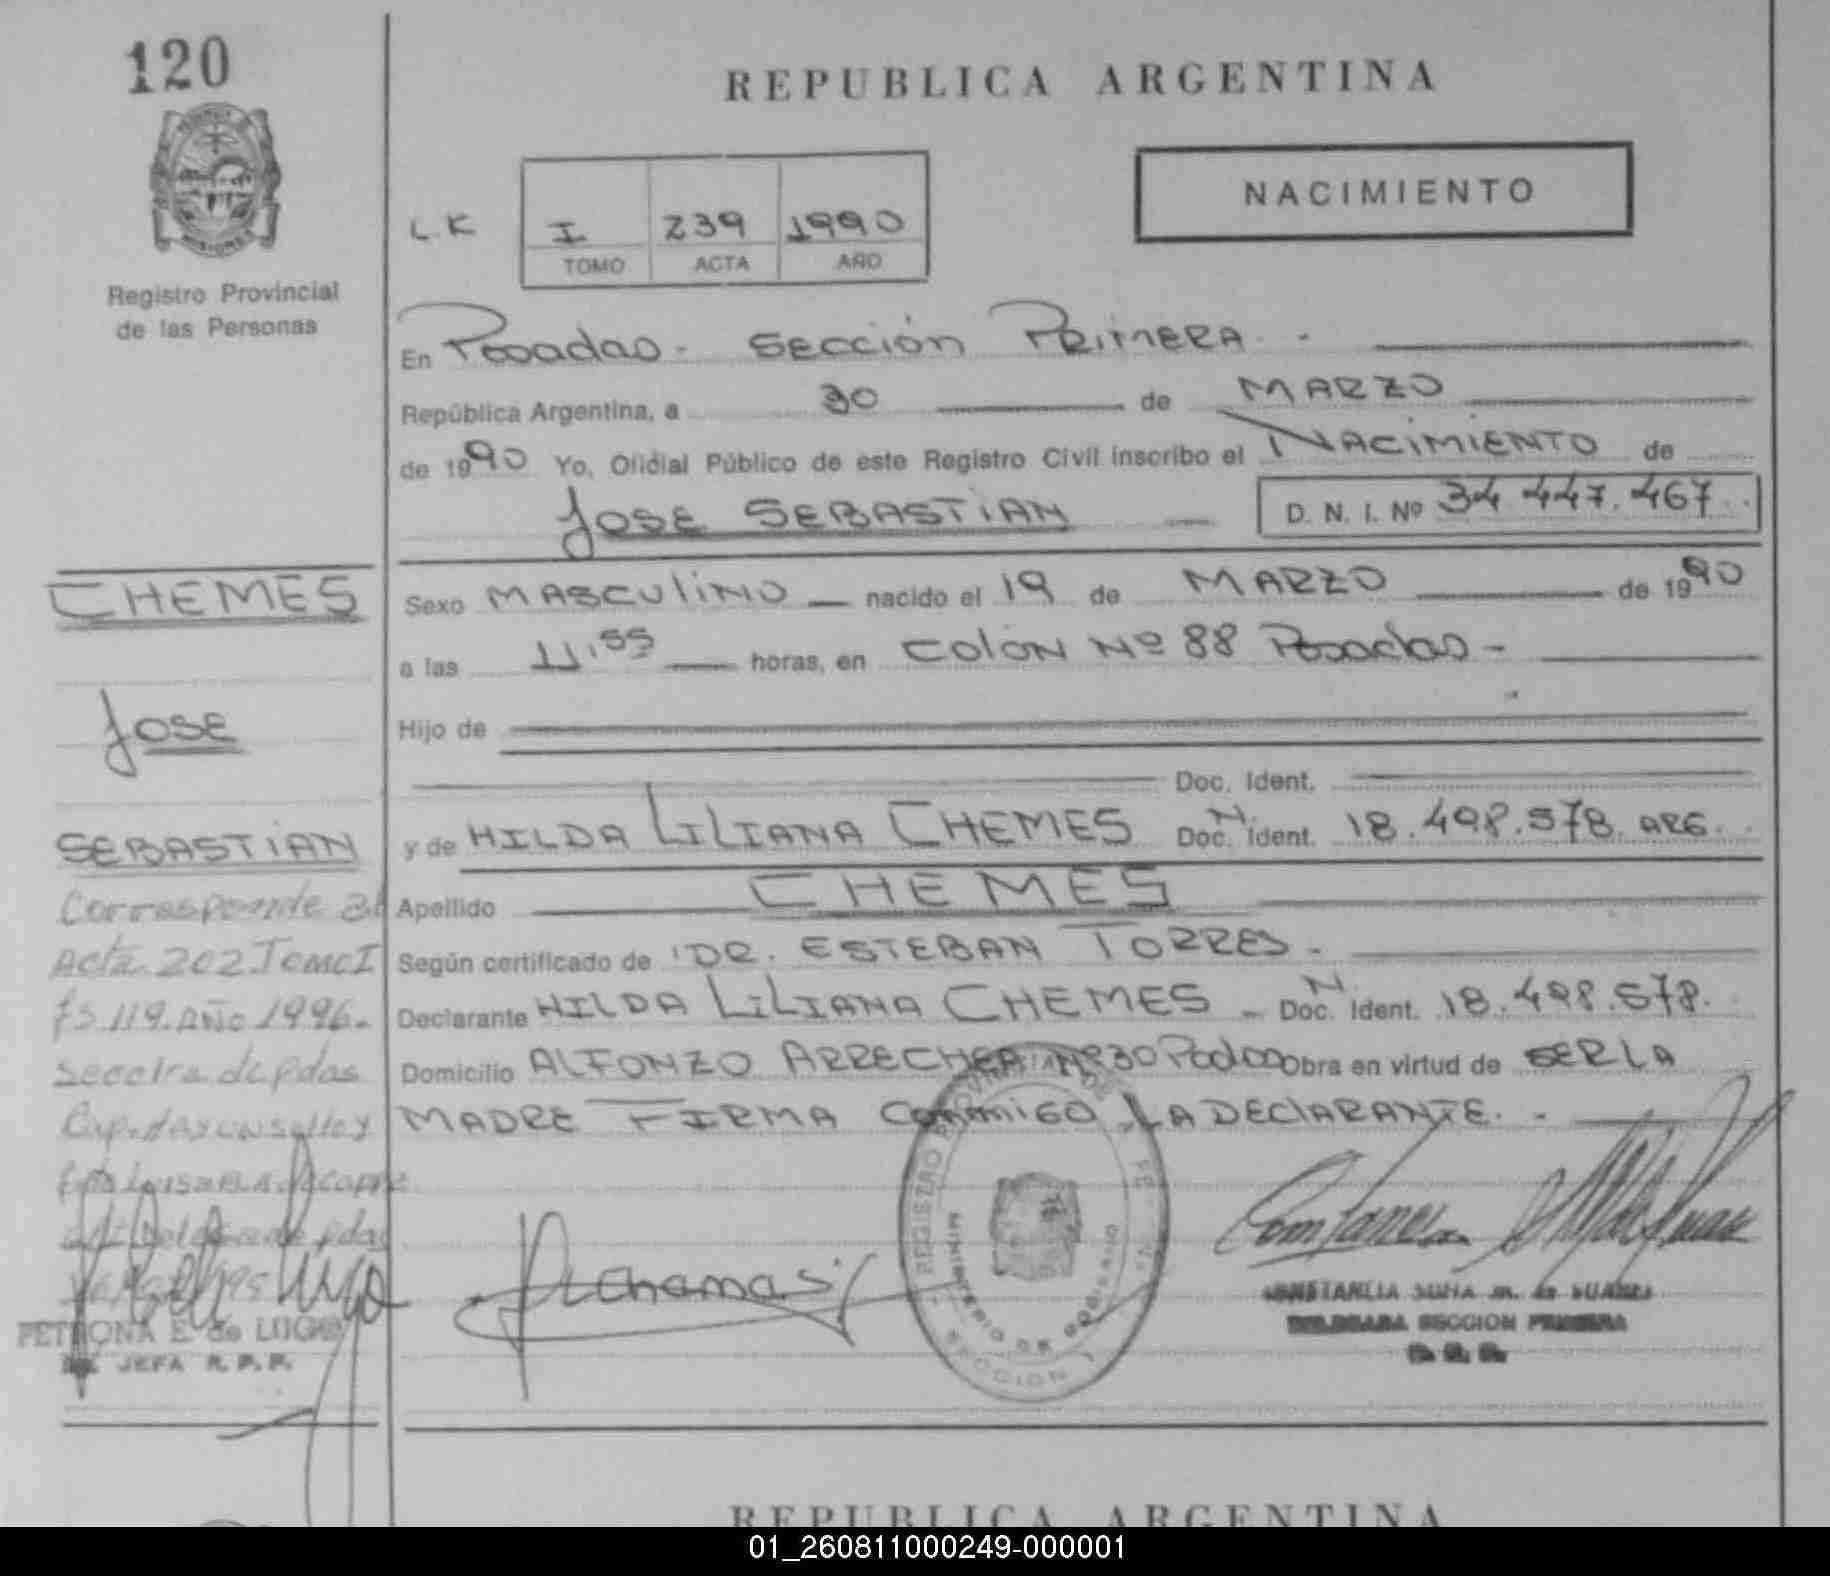 120
REPUBLICA ARGENTINA
NACIMIENTO
L.K
I 239 1990
TOMO ACTA AÑO
Registro Provincial
de las Personas
En Posadas. Sección Primera.
República Argentina, a 30 de MARZO
de 1990 Yo, Oficial Público de este Registro Civil inscribo el NACIMIENTO de
JOSE SEBASTIAN D. N. I. Nº 34.447.467
CHEMES
JOSE
SEBASTIAN
Sexo MASCULINO nacido el 19 de MARZO de 1990
a las 11.55 horas, en Colón Nº 88 Posadas
Hijo de
Doc. Ident.
y de HILDA LILIANA CHEMES Doc. N. Ident. 18.498.578 ARG.
Apellido CHEMES
Según certificado de DR. ESTEBAN TORRES.
Declarante HILDA LILIANA CHEMES Doc. N Ident. 18.498.578.
Domicilio ALFONZO ARRECHEA Nº 30 Obra en virtud de SER LA
MADRE FIRMA CONMIGO LA DECLARANTE.
Corresponde al
Acta 202 Tomo I
fs 119. Año 1996.
PETRONA E. de LUGO
JEFA R. P. P.
REGISTRO
MINISTERIO DE GOBIERNO
SECCION
DELEGADA SECCION PRIMERA
REPUBLICA ARGENTINA
01_260811000249-000001